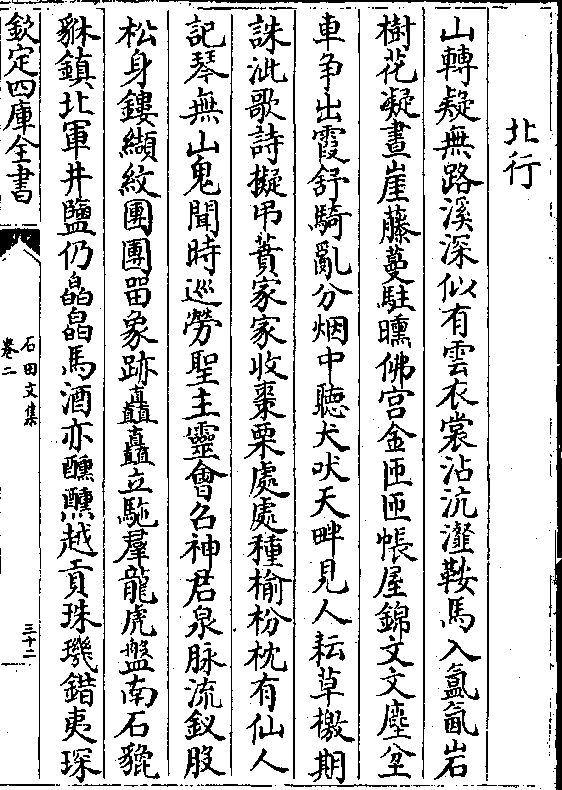 北行
山轉疑無路溪深似有雲衣裳沾沆瀣鞍馬入氤氳岩
樹花凝畫崖藤蔓駐曛佛宫金匝匝帳屋錦文文塵坌
車争出霞舒騎亂分烟中聽犬吠天畔見人耘草檄期
誅泚歌詩擬弔蕡家家收棗栗處處種榆枌枕有仙人
記琴無山鬼聞時巡勞聖主靈會名神君泉脉流釵股
松身鏤纈紋團團留象跡矗矗立駞羣龍虎盤南石貔
貅鎮北軍井鹽仍皛皛馬酒亦醺醺越貢珠璣錯夷琛
欽定四庫全書
石田文集
卷二
三十二